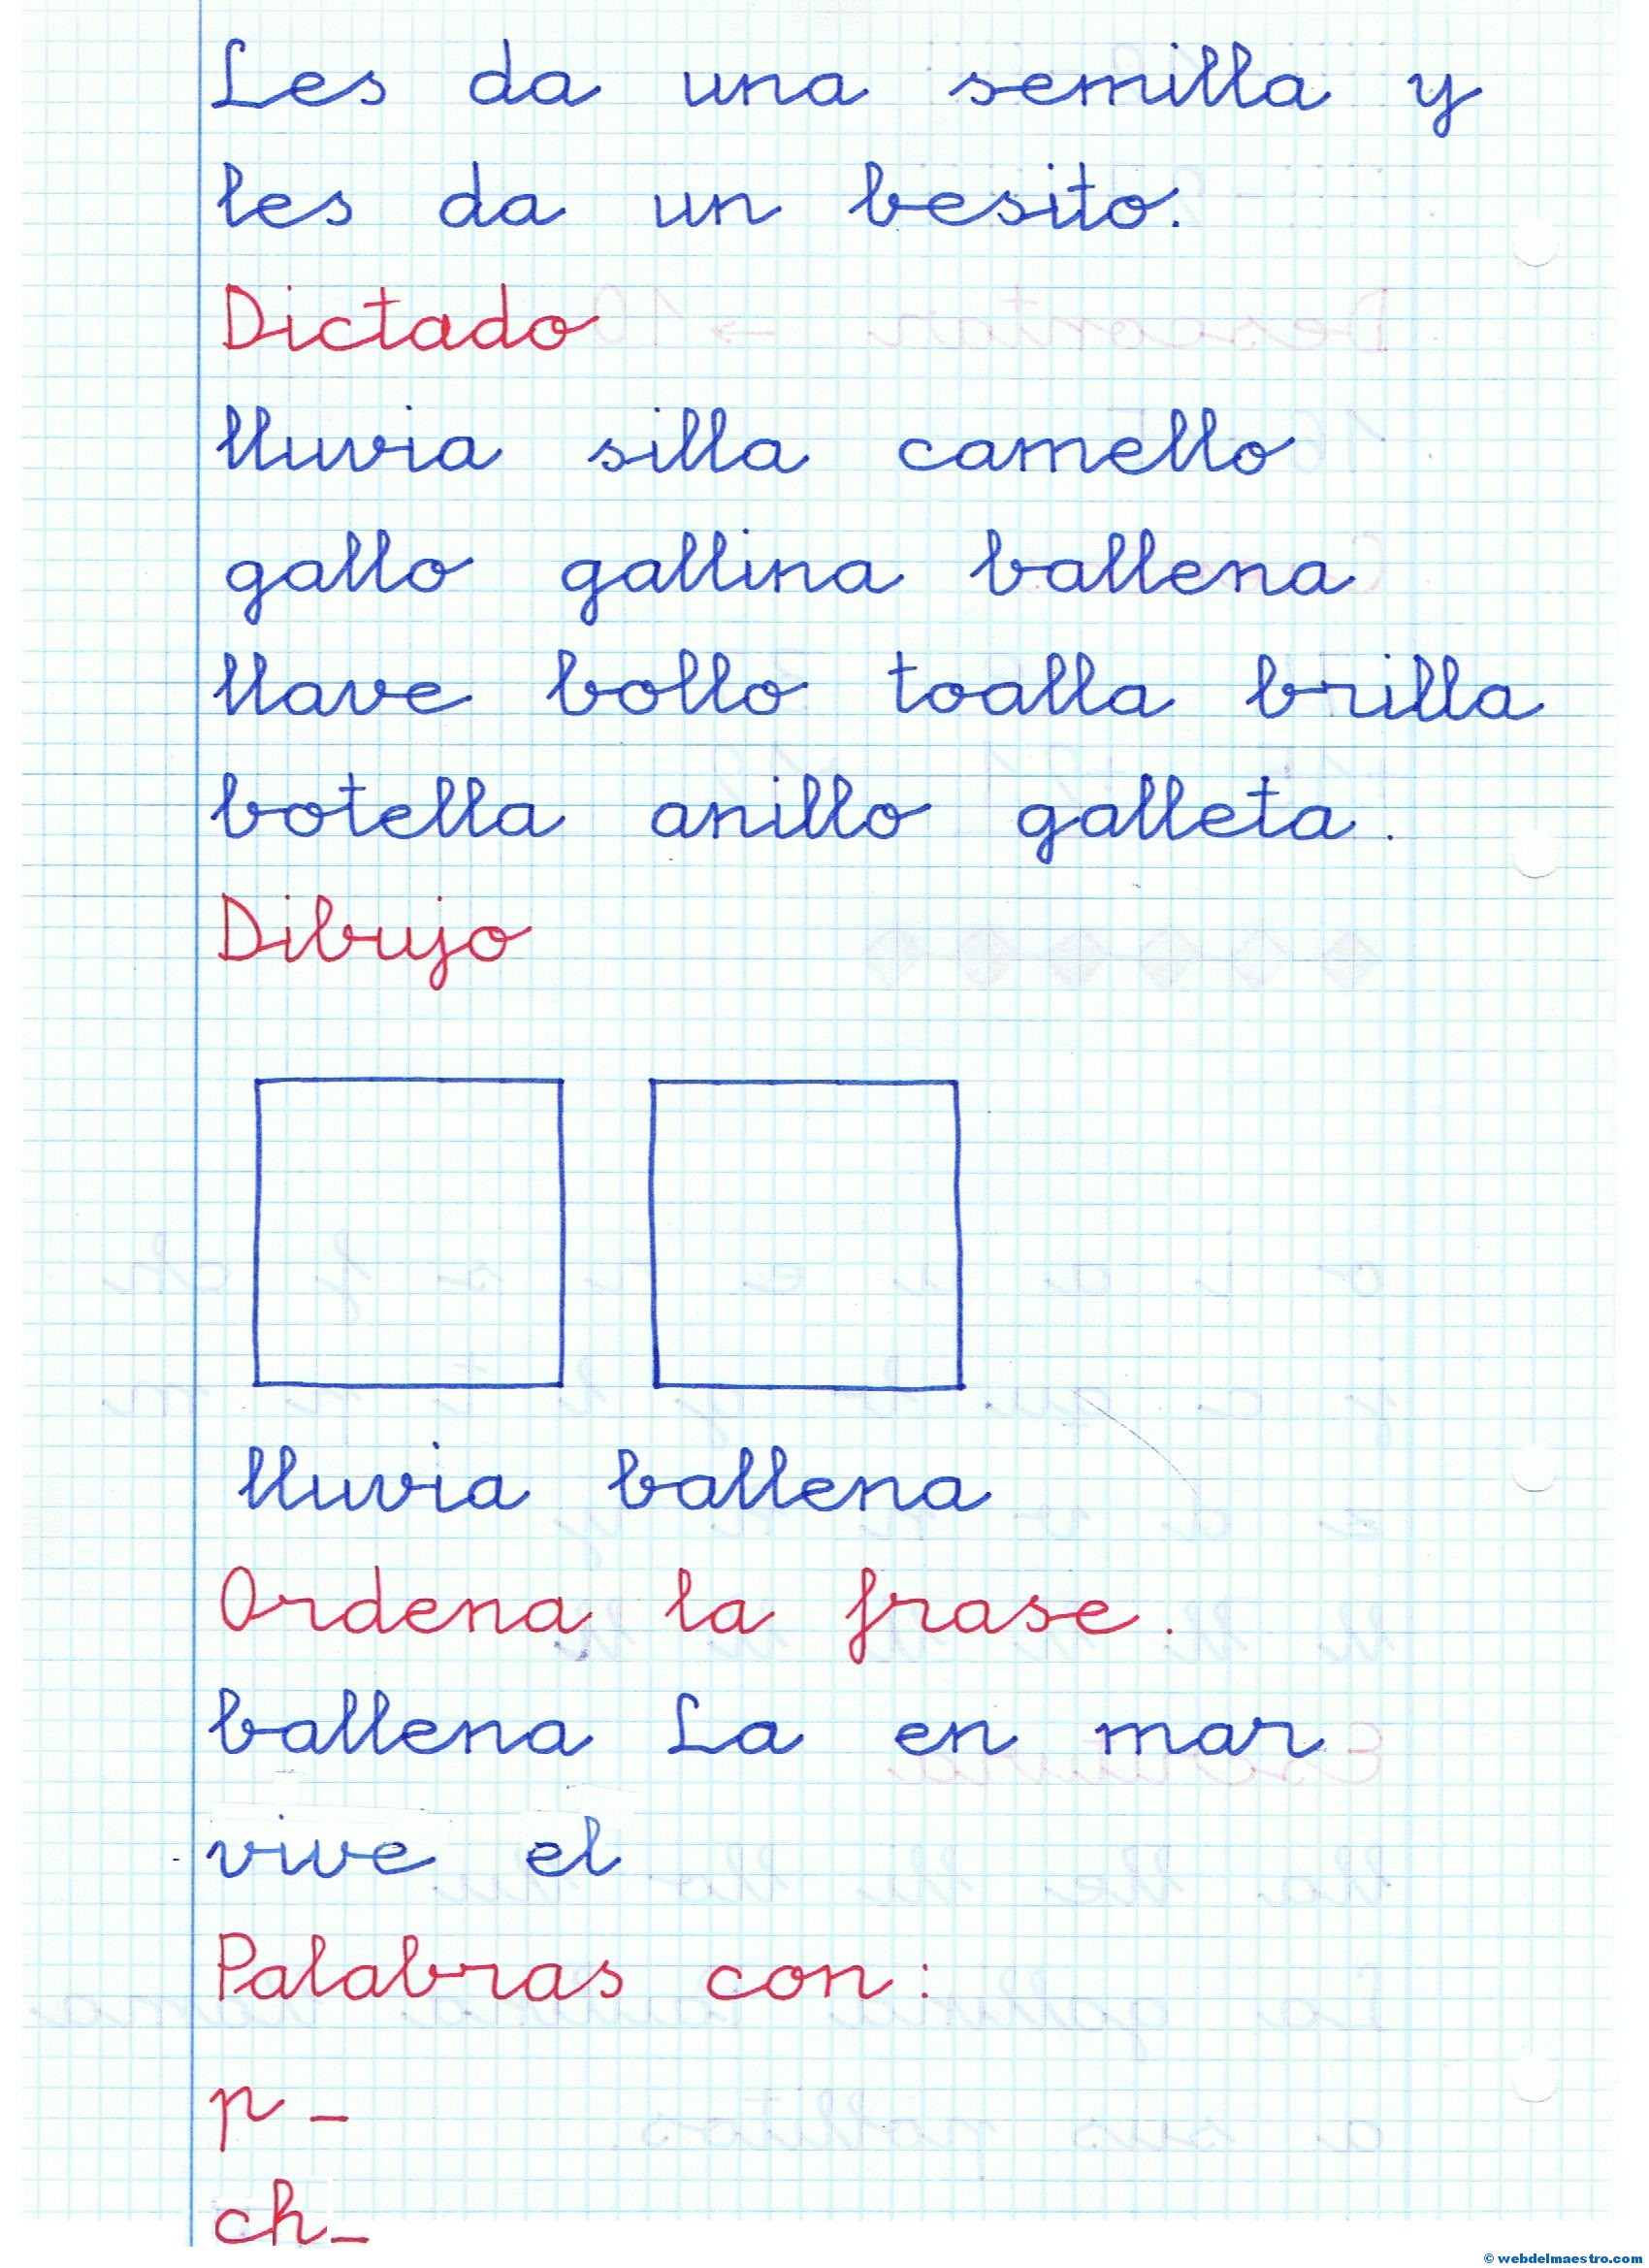 Les da una semilla y
les da un besito.
Dictado
lluvia silla camello
gallo gallina ballena
llave bollo toalla brilla
botella anillo galleta.
Dibujo
lluvia ballena
Ordena la frase.
ballena La en mar
vive el
Palabras con:
p -
ch -
© webdelmaestro.com